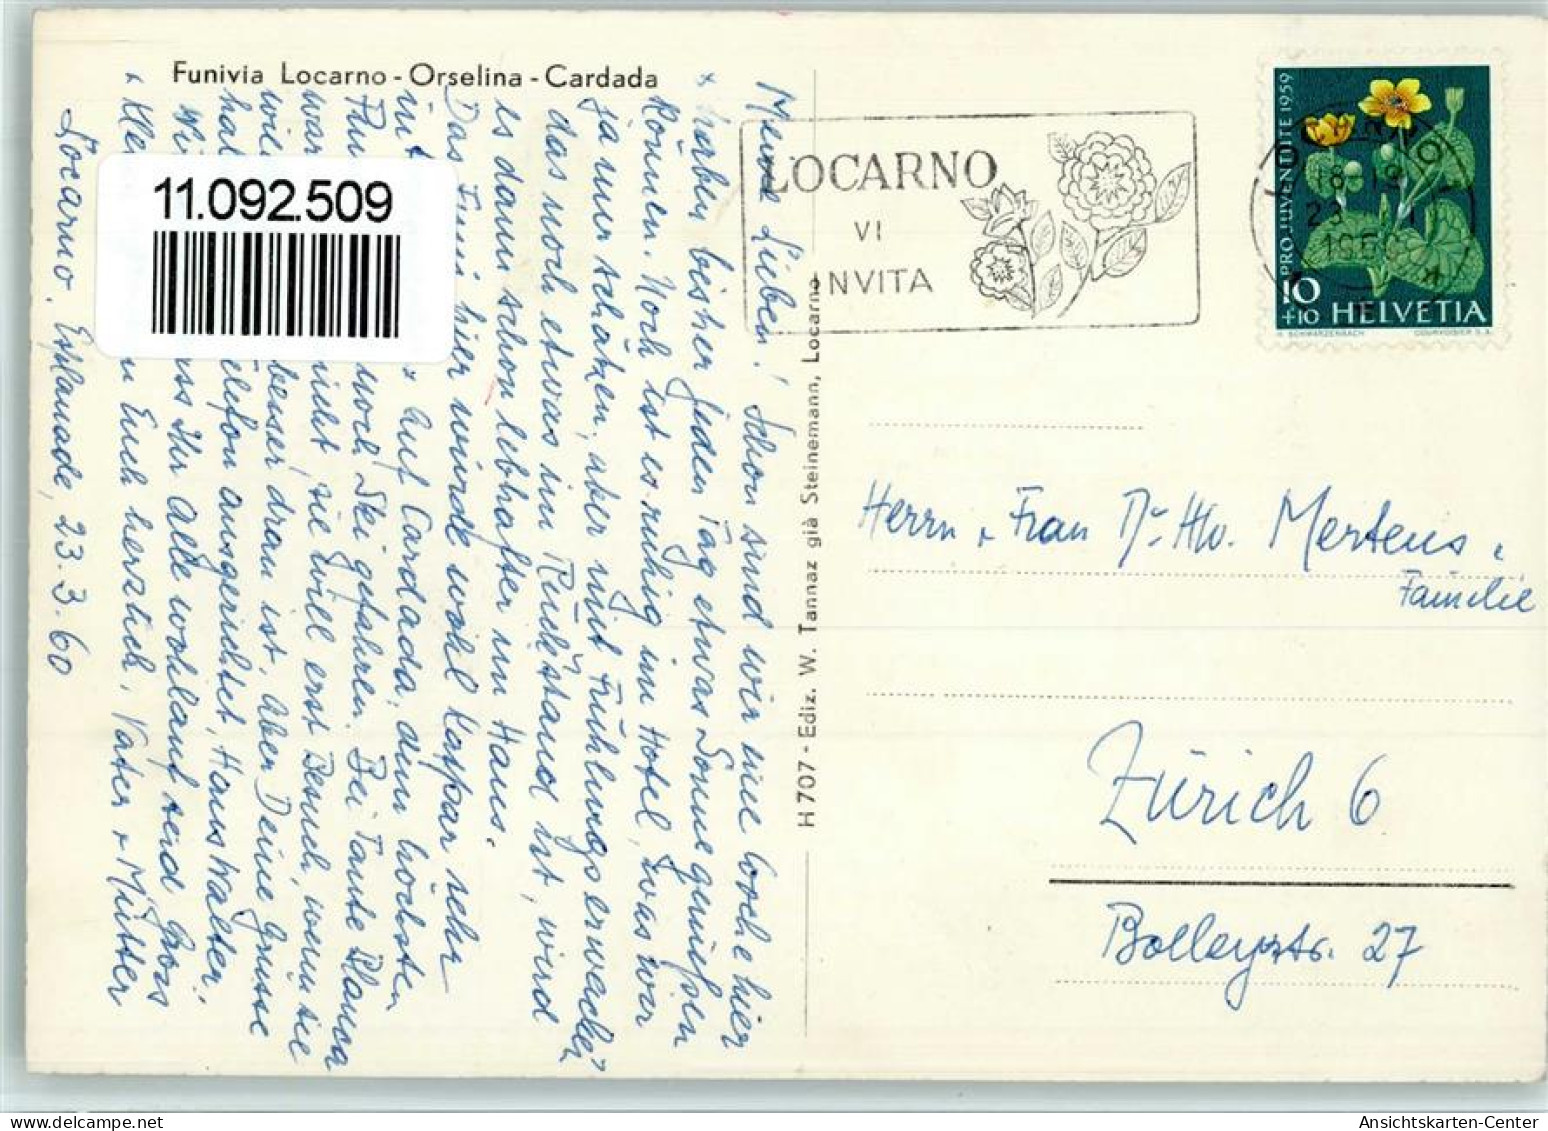 Funivia Locarno - Orselina - Cardada
11.092.509
Locarno, Esplanade, 23.3.60
Meine Lieben! Schon sind wir eine Woche hier
& haben bisher jeden Tag etwas Sonne geniessen
können. Noch ist es ruhig im Hotel, was wir
ja nur schätzen, aber mit Frühlingserwachen
das noch etwas im Rückstand ist, wird
es dann schon lebhafter im Haus.
Das Funi hier würde wohl Kaspar sehr
Auf Cardada, dem höchsten
noch Ski gefahren. Bei Tante Blanca
nicht, sie will erst Besuch, wenn sie
besser dran ist. Aber Deine Grüsse
ausgerichtet, Hans Walter.
Ihr Alle wohlauf seid Gross
Euch herzlich, Vater & Mutter
H 707 - Ediz. W. Tannaz già Steinemann, Locarno
LOCARNO
VI
INVITA
LOCARNO
18-19
23
PRO JUVENTUTE 1959
10
+10 HELVETIA
H. SCHWARZENBACH COURVOISIER S.A.
Herrn & Frau Dr. Mertens &
Familie
Zürich 6
Bolleystr. 27
Ansichtskarten-Center